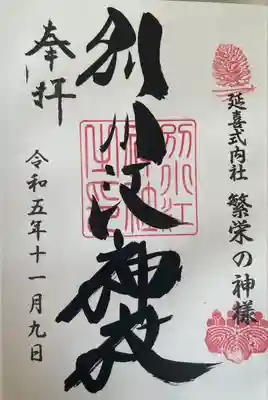 延喜式内社 繁栄の神様
別小江神社
奉拝
令和五年十一月九日
別小江
神社
之印